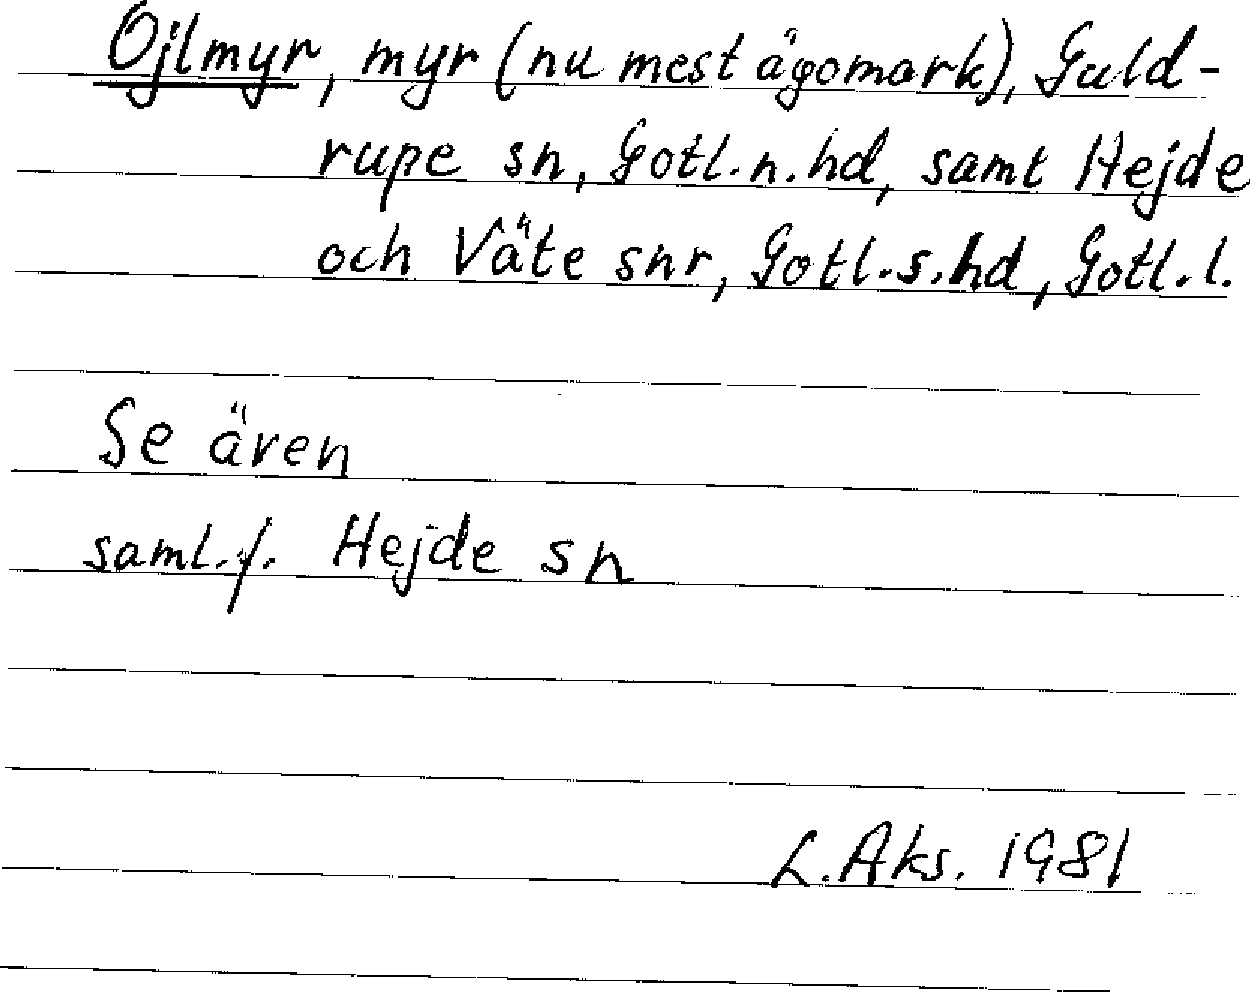 Ojlmyr, myr (nu mest ägomark), Guld-
rupe sn, Gotl.n.hd, samt Hejde
och Väte snr, Gotl.s.hd, Gotl.l.
Se även
saml.f. Hejde sn
L.Aks. 1981